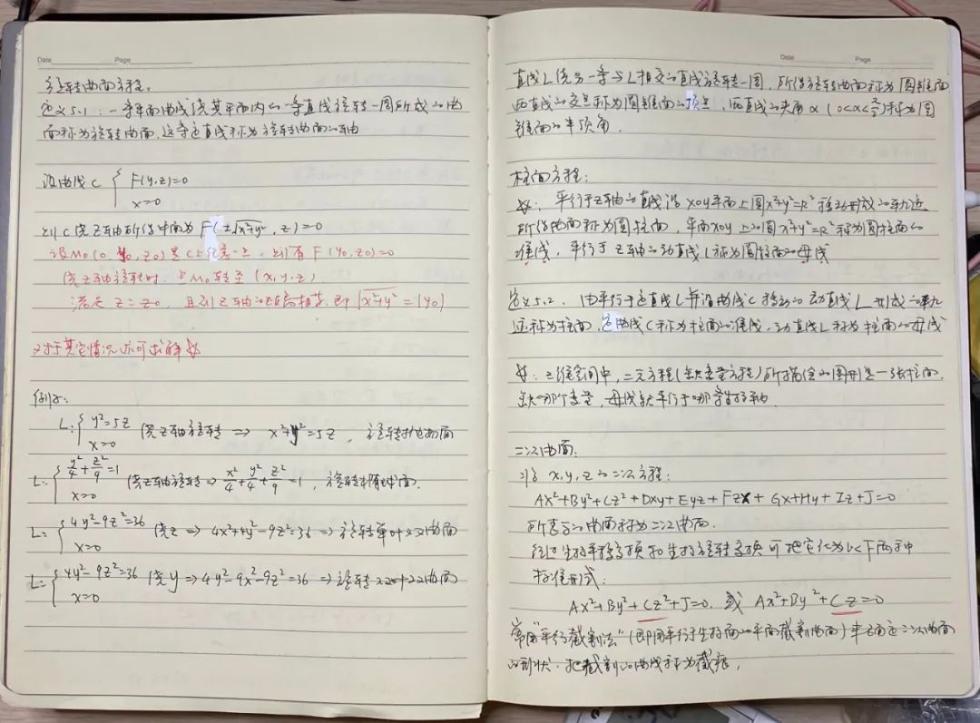 Date Page
旋转曲面方程。
定义5.1:一条平面曲线绕其平面内的一条直线旋转一周所成的曲
面称为旋转曲面,这条定直线称为旋转曲面的轴
设曲线C { F(y,z)=0
x=0
则C绕Z轴所得曲面为 F(±√x²+y², z)=0
设M₀(0, y₀, z₀)是C上任意一点,则有 F(y₀,z₀)=0
绕Z轴旋转时,点M₀转至(x,y,z)
满足 z=z₀, 且到Z轴的距离相等,即 √x²+y² = |y₀|
对于其它情况亦可求解
例:
L:{ y²=5z 绕z轴旋转 ⇒ x²+y²=5z, 旋转抛物面
x=0
L:{ y²/4+z²/9=1 绕z轴旋转 ⇒ x²/4+y²/4+z²/9=1, 旋转椭球面.
x=0
L:{ 4y²-9z²=36 绕z ⇒ 4x²+4y²-9z²=36 ⇒ 旋转单叶双曲面
x=0
L:{ 4y²-9z²=36 绕y ⇒ 4y²-9x²-9z²=36 ⇒ 旋转双叶双曲面
x=0
Date Page
直线L绕另一条与L相交的直线旋转一周,所得旋转曲面称为圆锥面
两直线的交点称为圆锥面的顶点,两直线的夹角α(0<α<π/2)称为圆
锥面的半顶角.
柱面方程:
平行于z轴的直线沿xoy平面上圆x²+y²=R²移动形成的轨迹
所得曲面称为圆柱面,平面xoy上的圆x²+y²=R²称为圆柱面的
准线,平行于z轴的动直线L称为圆柱面的母线
定义5.2. 由平行于定直线L并沿曲线C移动的动直线L形成的轨
迹称为柱面,定曲线C称为柱面的准线,动直线L称为柱面的母线
三维空间中,二元方程(缺变量方程)所描绘的图形是一张柱面,
缺哪个变量,母线就平行于哪条坐标轴.
二次曲面.
x,y,z的二次方程:
Ax²+By²+Cz²+Dxy+Eyz+Fzx+Gx+Hy+Iz+J=0
所表示的曲面称为二次曲面.
经过坐标平移变换和坐标旋转变换可把它化为以下两种
标准形式:
Ax²+By²+Cz²+J=0. 或 Ax²+By²+Cz=0
常用"平行截割法"(即用平行于坐标面的平面截割曲面)来确定二次曲面
的形状.把截割的曲线称为截痕.